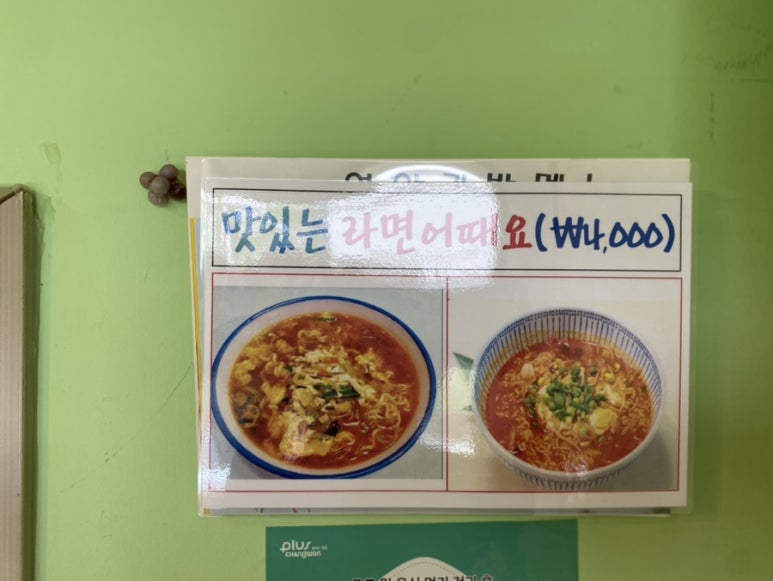 맛있는 라면어때요(₩4,000)
plus
CHANGWON